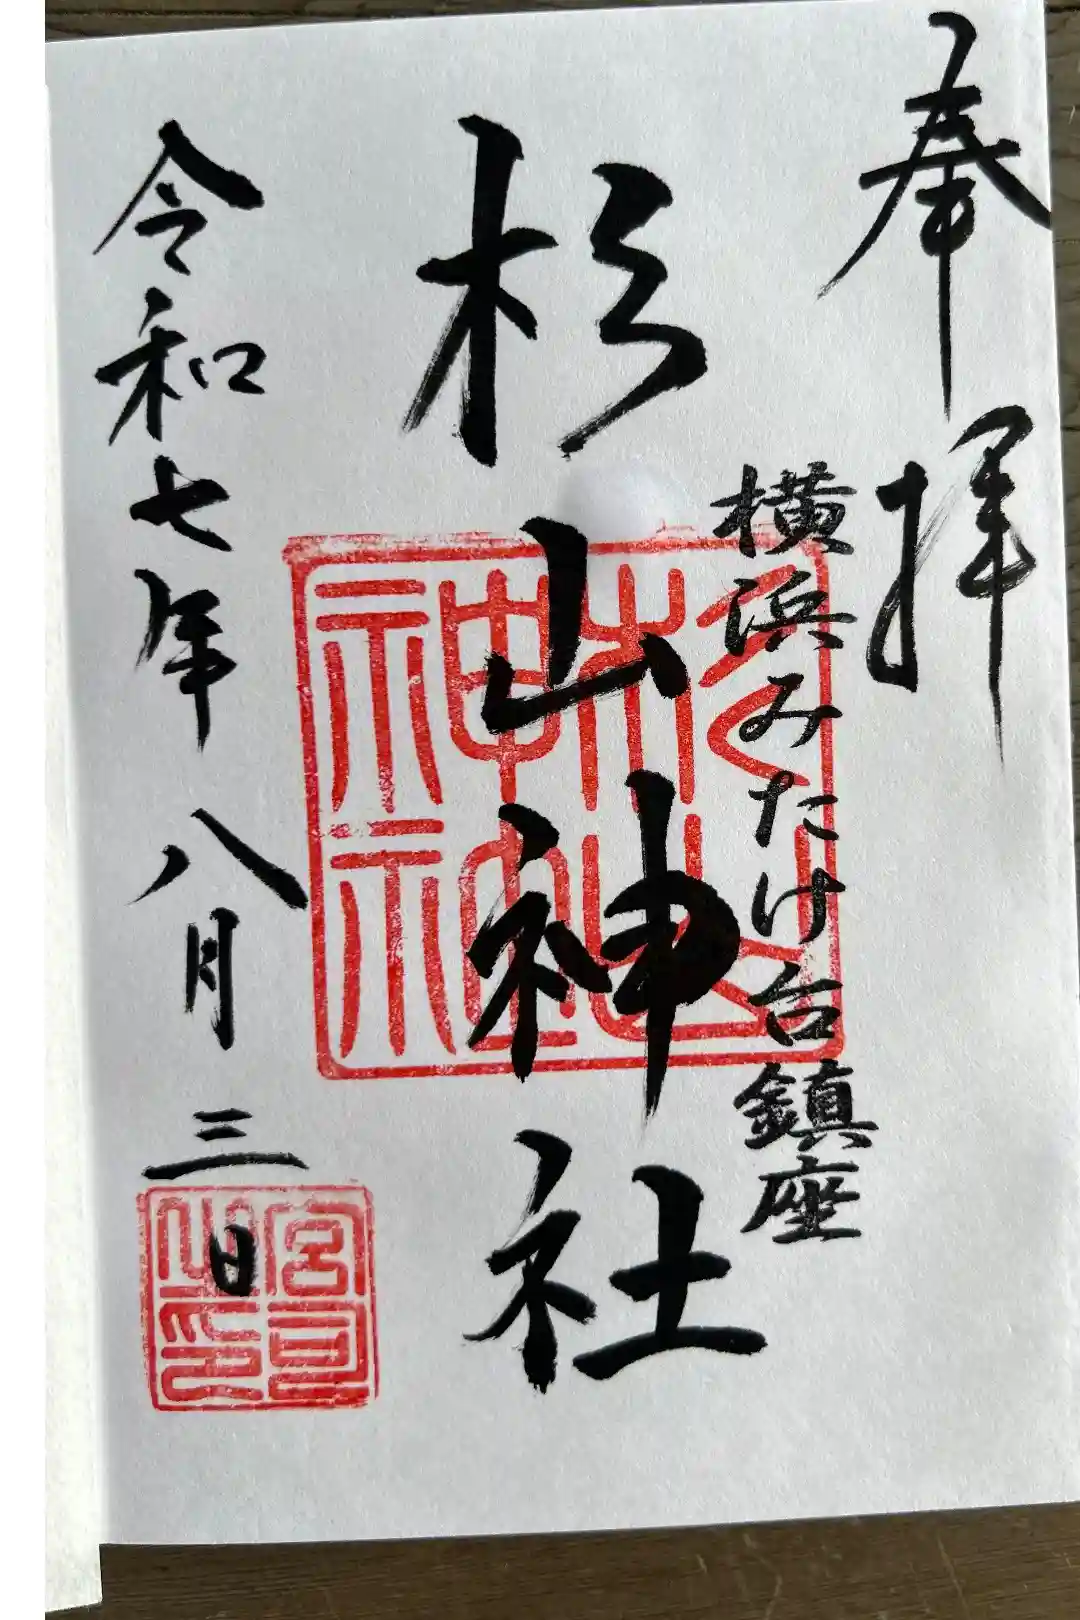 奉拝
横浜みたけ台鎮座
杉山神社
令和七年八月三日
宮司之印